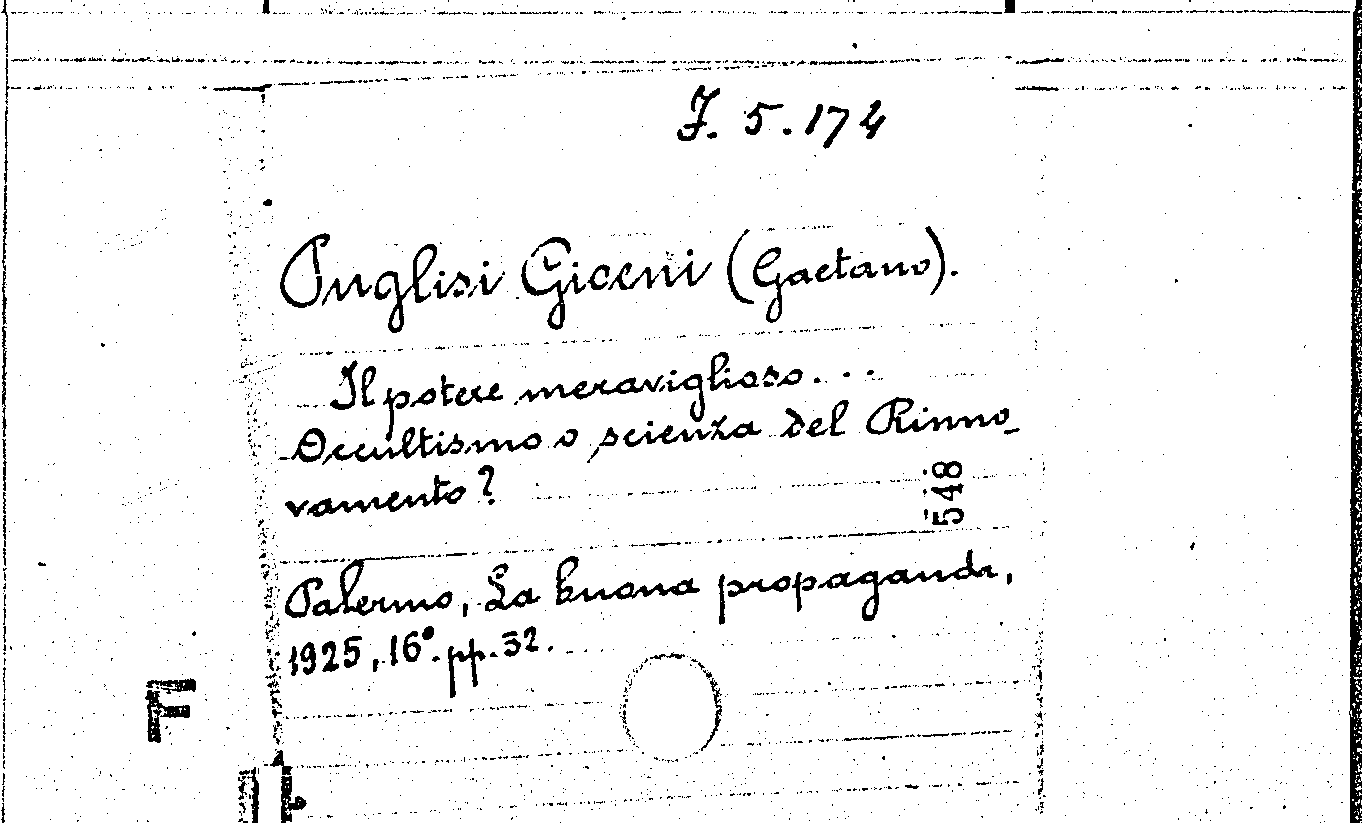 J. 5. 174
Puglisi Giceni (Gaetano).
Il potere meraviglioso...
Occultismo o scienza del Rinno_
vamento?
548
Palermo, La buona propaganda,
1925, 16°. pp. 32.
F